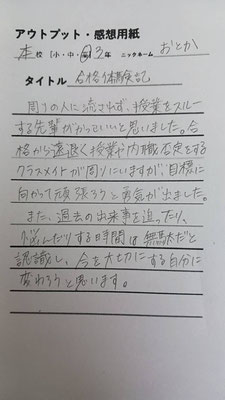 アウトプット・感想用紙
本校 [小・中・高] 3年 ニックネーム おとか
タイトル 合格体験記
周りの人に流されず、授業をスルー
する先輩がかっていいと思いました。合
格から遠退く授業や内職否定をする
クラスメイトが周りにいますが、目標に
向かって頑張ろうと勇気が出ました。
また、過去の出来事を追ったり、
悩んだりする時間は無駄だと
認識し、今を大切にする自分に
変わろうと思います。